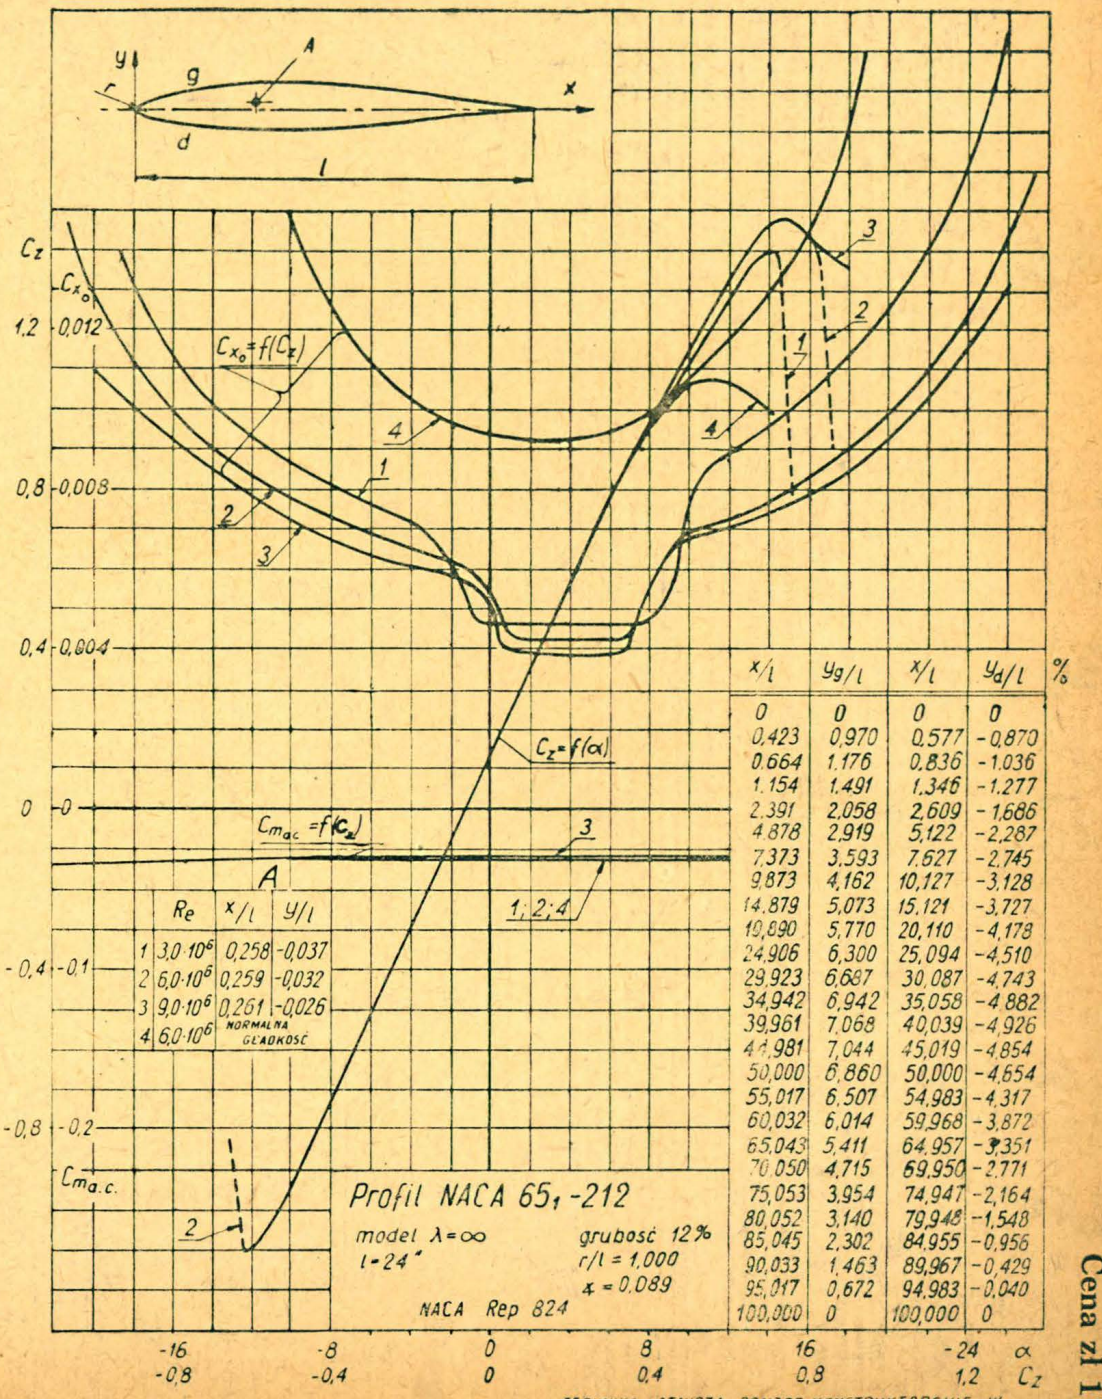 y
g
A
r
x
d
l
Cz
Cx₀
1.2 0,012
Cx₀=f(Cz)
3
2
1
4
4
1
0,8 0,008
2
3
0,4 0,004
Cz=f(α)
0 0
Cmac=f(Cz)
3
1; 2; 4
A
Re x/l y/l
1 3,0·10⁶ 0,258 -0,037
2 6,0·10⁶ 0,259 -0,032
3 9,0·10⁶ 0,261 -0,026
4 6,0·10⁶ NORMALNA GŁADKOŚĆ
-0,4 -0,1
-0,8 -0,2
Cma.c.
2
Profil NACA 65₁-212
model λ=∞ grubość 12%
l=24" r/l = 1,000
x = 0.089
NACA Rep 824
x/l yg/l x/l yd/l %
0 0 0 0
0,423 0,970 0,577 -0,870
0.664 1.176 0,836 -1.036
1.154 1.491 1,346 -1.277
2.391 2,058 2,609 -1,686
4.878 2,919 5,122 -2,287
7,373 3,593 7.627 -2,745
9,873 4,162 10,127 -3,128
14.879 5,073 15,121 -3,727
19,890 5.770 20,110 -4,178
24,906 6,300 25,094 -4,510
29,923 6,687 30,087 -4,743
34,942 6,942 35,058 -4,882
39,961 7,068 40,039 -4,926
44,981 7,044 45,019 -4,854
50,000 6,860 50,000 -4,654
55,017 6,507 54,983 -4,317
60,032 6,014 59,968 -3,872
65,043 5,411 64,957 -3,351
70,050 4,715 69,950 -2,771
75,053 3,954 74,947 -2,164
80,052 3,140 79,948 -1,548
85,045 2,302 84,955 -0,956
90,033 1,463 89,967 -0,429
95,017 0,672 94,983 -0,040
100,000 0 100,000 0
-16 -8 0 8 16 -24 α
-0,8 -0,4 0 0,4 0,8 1,2 Cz
Cena zł 1